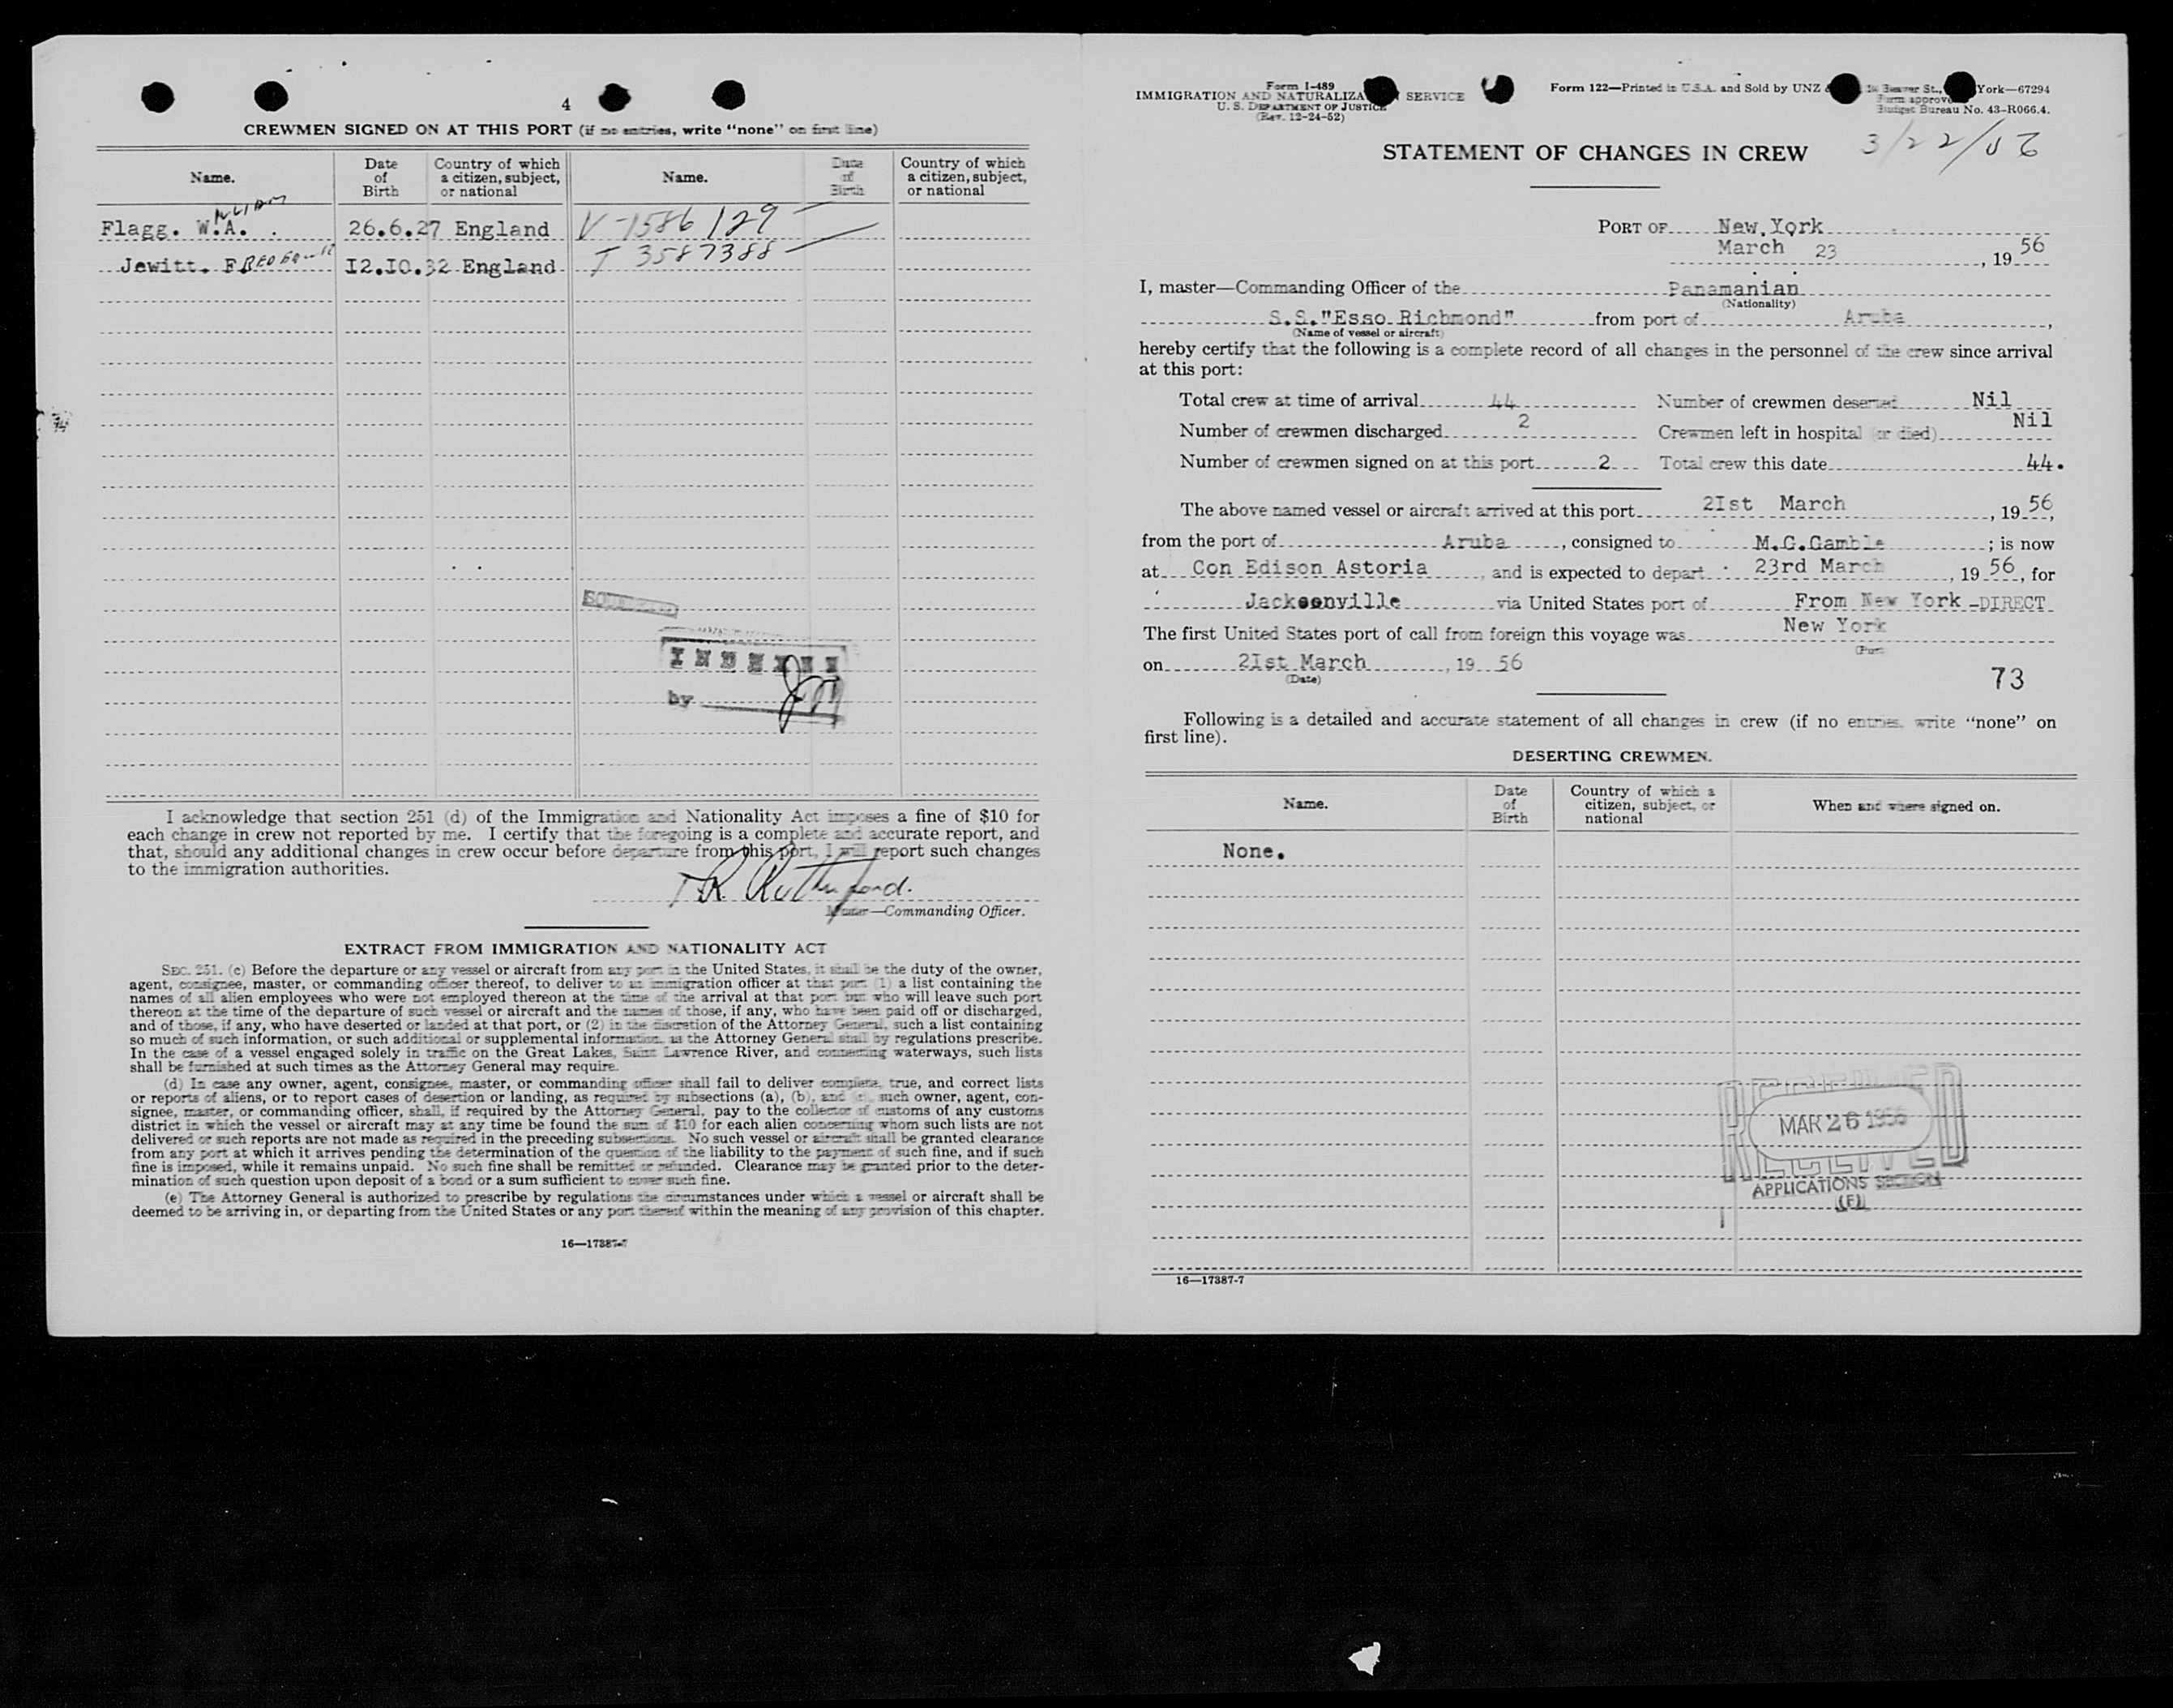 4
CREWMEN SIGNED ON AT THIS PORT (if no entries, write "none" on first line)
Name. Date of Birth Country of which a citizen, subject, or national Name. Date of Birth Country of which a citizen, subject, or national
WILLIAM
Flagg. W.A. . 26.6.27 England V-1586129
Jewitt. FREDERICK I2.I0.32 England T 3587388
INDEXED
by
I acknowledge that section 251 (d) of the Immigration and Nationality Act imposes a fine of $10 for
each change in crew not reported by me. I certify that the foregoing is a complete and accurate report, and
that, should any additional changes in crew occur before departure from this port, I will report such changes
to the immigration authorities.
T.R. Rutherford.
Master—Commanding Officer.
EXTRACT FROM IMMIGRATION AND NATIONALITY ACT
SEC. 251. (c) Before the departure or any vessel or aircraft from any port in the United States, it shall be the duty of the owner,
agent, consignee, master, or commanding officer thereof, to deliver to an immigration officer at that port (1) a list containing the
names of all alien employees who were not employed thereon at the time of the arrival at that port but who will leave such port
thereon at the time of the departure of such vessel or aircraft and the names of those, if any, who have been paid off or discharged,
and of those, if any, who have deserted or landed at that port, or (2) in the discretion of the Attorney General, such a list containing
so much of such information, or such additional or supplemental information, as the Attorney General shall by regulations prescribe.
In the case of a vessel engaged solely in traffic on the Great Lakes, Saint Lawrence River, and connecting waterways, such lists
shall be furnished at such times as the Attorney General may require.
(d) In case any owner, agent, consignee, master, or commanding officer shall fail to deliver complete, true, and correct lists
or reports of aliens, or to report cases of desertion or landing, as required by subsections (a), (b), and (c), such owner, agent, con-
signee, master, or commanding officer, shall, if required by the Attorney General, pay to the collector of customs of any customs
district in which the vessel or aircraft may at any time be found the sum of $10 for each alien concerning whom such lists are not
delivered or such reports are not made as required in the preceding subsections. No such vessel or aircraft shall be granted clearance
from any port at which it arrives pending the determination of the question of the liability to the payment of such fine, and if such
fine is imposed, while it remains unpaid. No such fine shall be remitted or refunded. Clearance may be granted prior to the deter-
mination of such question upon deposit of a bond or a sum sufficient to cover such fine.
(e) The Attorney General is authorized to prescribe by regulations the circumstances under which a vessel or aircraft shall be
deemed to be arriving in, or departing from the United States or any port thereof within the meaning of any provision of this chapter.
16—17387-7
Form I-489
IMMIGRATION AND NATURALIZA SERVICE
U. S. DEPARTMENT OF JUSTICE
(Rev. 12-24-52)
Form 122—Printed in U.S.A. and Sold by UNZ & Beaver St., York—67294
Form approve
Budget Bureau No. 43-R066.4.
3/22/56
STATEMENT OF CHANGES IN CREW
PORT OF New York
March 23, 19 56
I, master—Commanding Officer of the Panamanian
(Nationality)
S.S."Esso Richmond" from port of Aruba,
(Name of vessel or aircraft)
hereby certify that the following is a complete record of all changes in the personnel of the crew since arrival
at this port:
Total crew at time of arrival 44 Number of crewmen deserted Nil
Number of crewmen discharged 2 Crewmen left in hospital (or died) Nil
Number of crewmen signed on at this port 2 Total crew this date 44.
The above named vessel or aircraft arrived at this port 2Ist March, 19 56,
from the port of Aruba, consigned to M.G.Gamble; is now
at Con Edison Astoria, and is expected to depart 23rd March, 19 56, for
Jacksonville via United States port of From New York -DIRECT
The first United States port of call from foreign this voyage was New York
(Port)
on 2Ist March, 19 56
(Date)
73
Following is a detailed and accurate statement of all changes in crew (if no entries, write "none" on
first line).
DESERTING CREWMEN.
Name. Date of Birth Country of which a citizen, subject, or national When and where signed on.
None.
RECEIVED
MAR 26 1956
RECEIVED
APPLICATIONS SECTION
(F)
16—17387-7